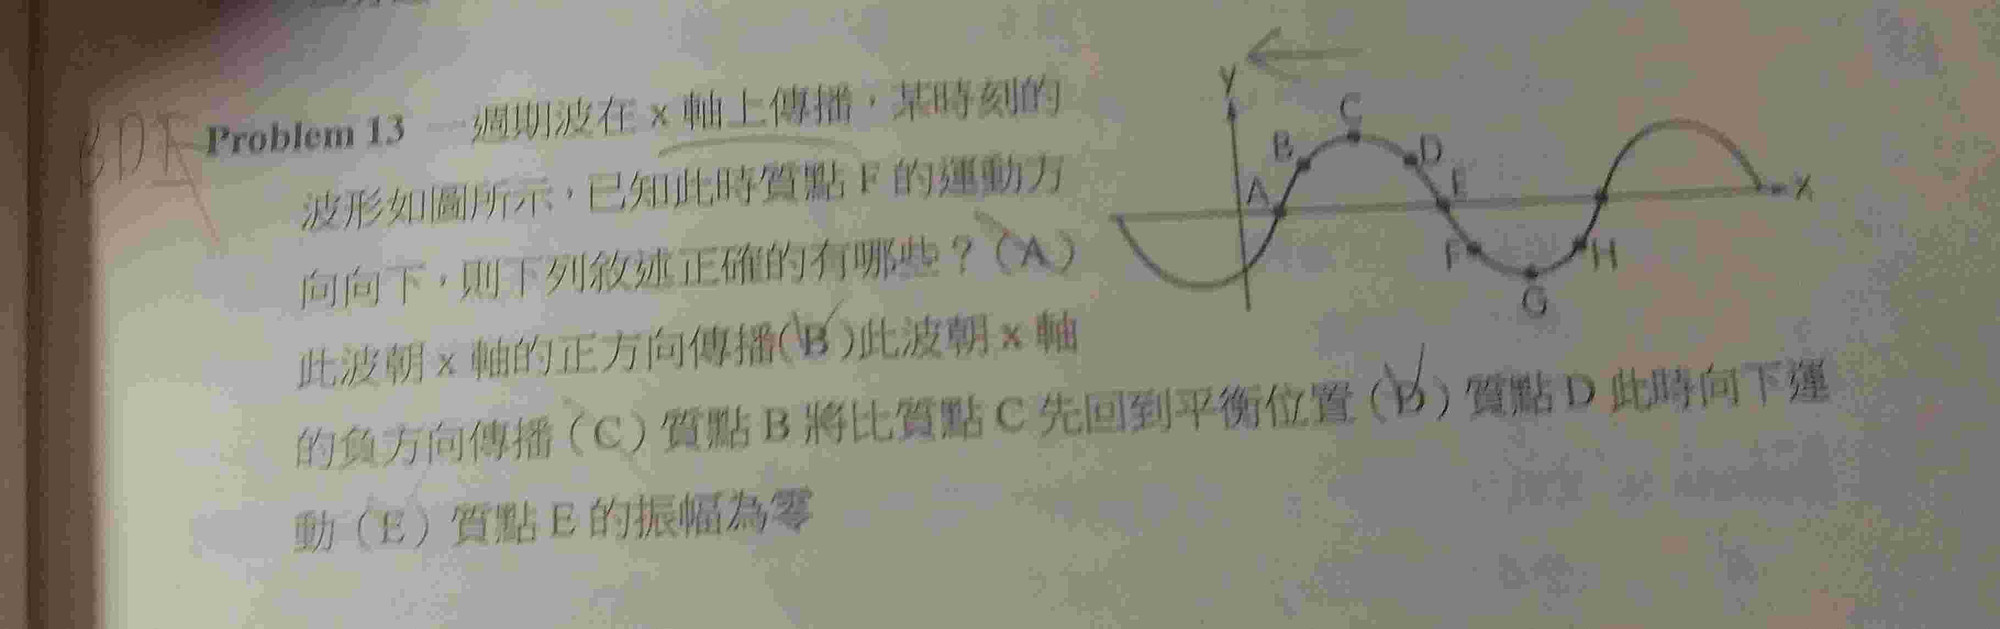 Problem 13 一週期波在 x 軸上傳播，某時刻的
波形如圖所示，已知此時質點 F 的運動方
向向下，則下列敘述正確的有哪些？（A）
此波朝 x 軸的正方向傳播(B)此波朝 x 軸
的負方向傳播（C）質點 B 將比質點 C 先回到平衡位置（D）質點 D 此時向下運
動（E）質點 E 的振幅為零
Y
A
B
C
D
E
F
G
H
X